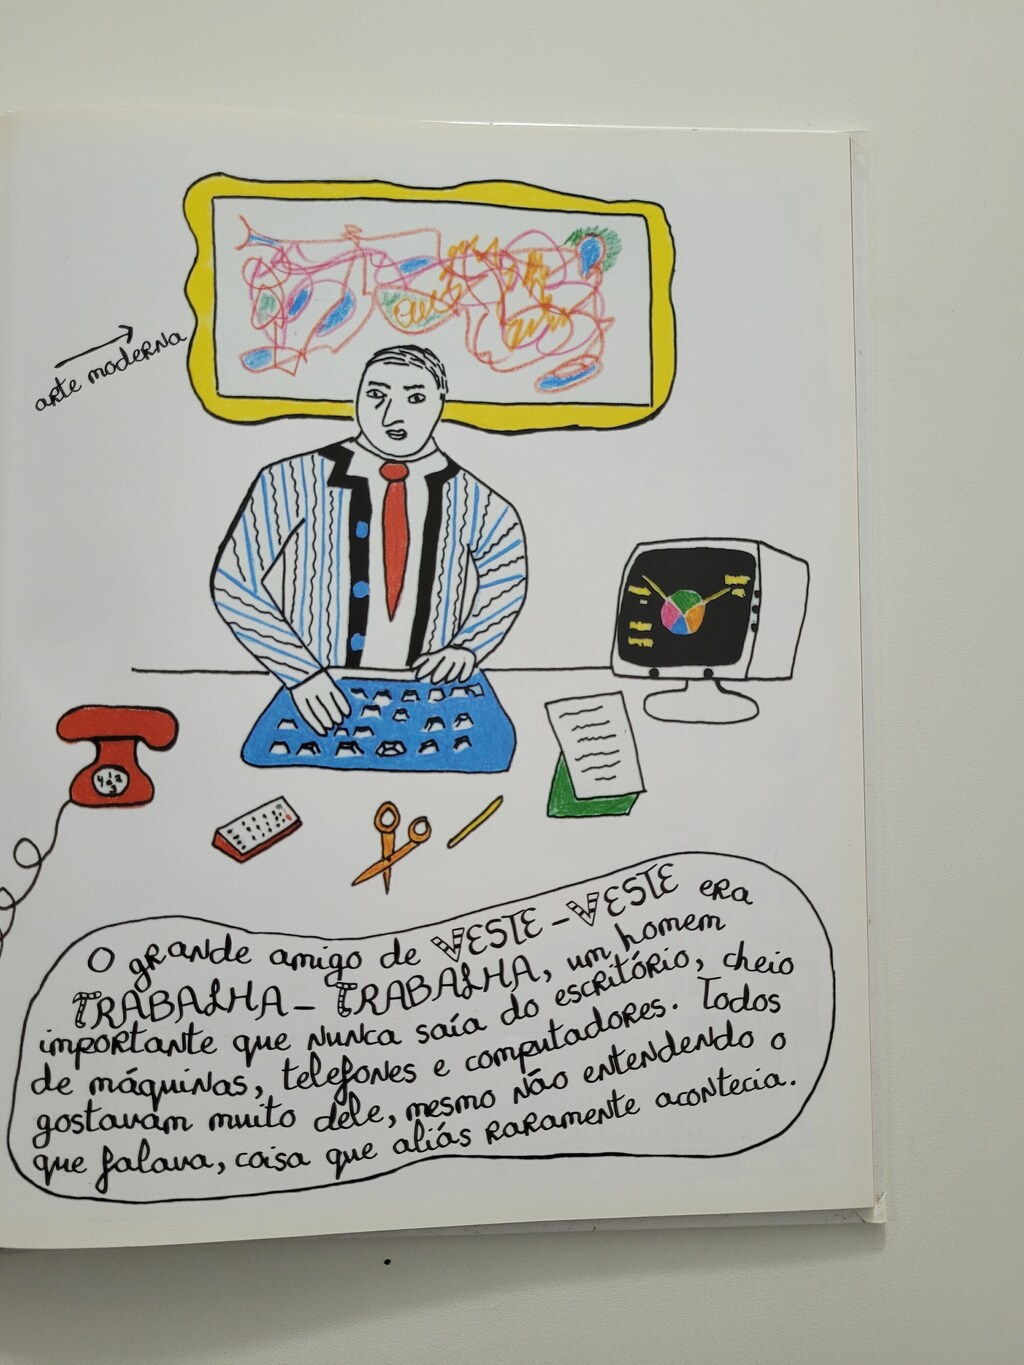 arte moderna
O grande amigo de VESTE-VESTE era
TRABALHA-TRABALHA, um homem
importante que nunca saía do escritório, cheio
de máquinas, telefones e computadores. Todos
gostavam muito dele, mesmo não entendendo o
que falava, coisa que aliás raramente acontecia.